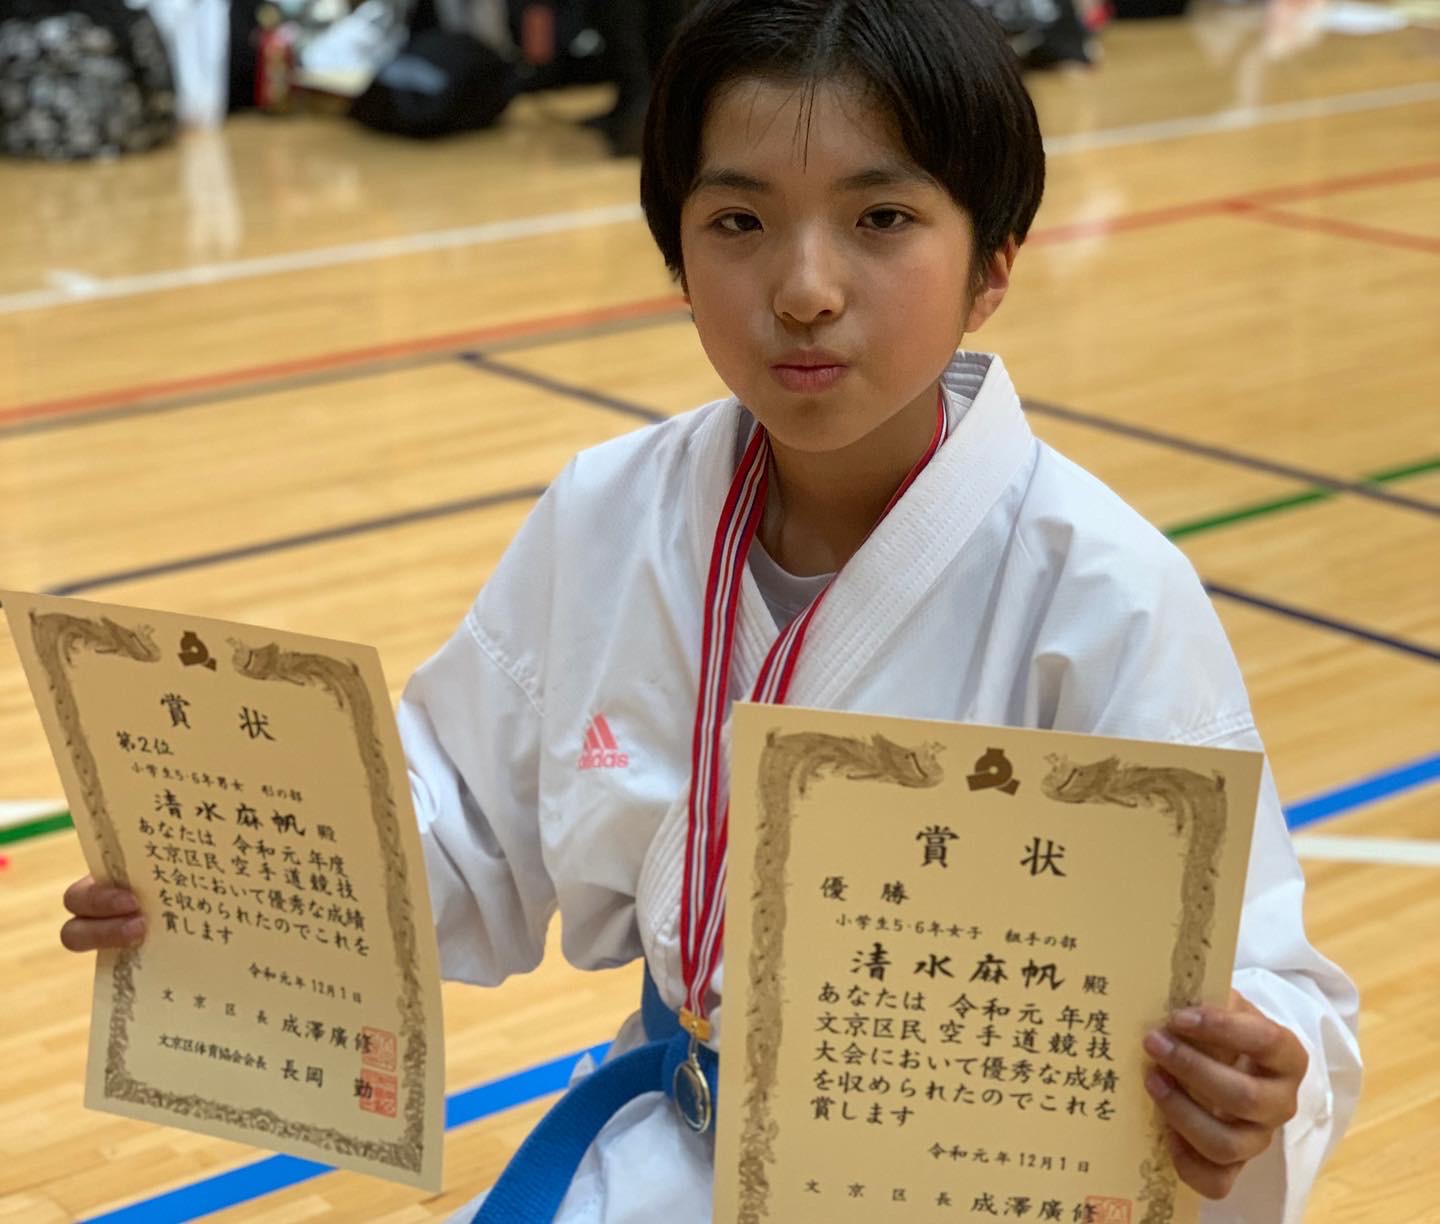 賞 状
第2位
小学生5・6年男女 形の部
清水麻帆 殿
あなたは 令和元年度
文京区民空手道競技
大会において優秀な成績
を収められたのでこれを
賞します
令和元年12月1日
文京区長 成澤廣修
文京区体育協会会長 長岡 勤
adidas
賞 状
優 勝
小学生5・6年女子 組手の部
清水麻帆 殿
あなたは 令和元年度
文京区民空手道競技
大会において優秀な成績
を収められたのでこれを
賞します
令和元年12月1日
文京区長 成澤廣修